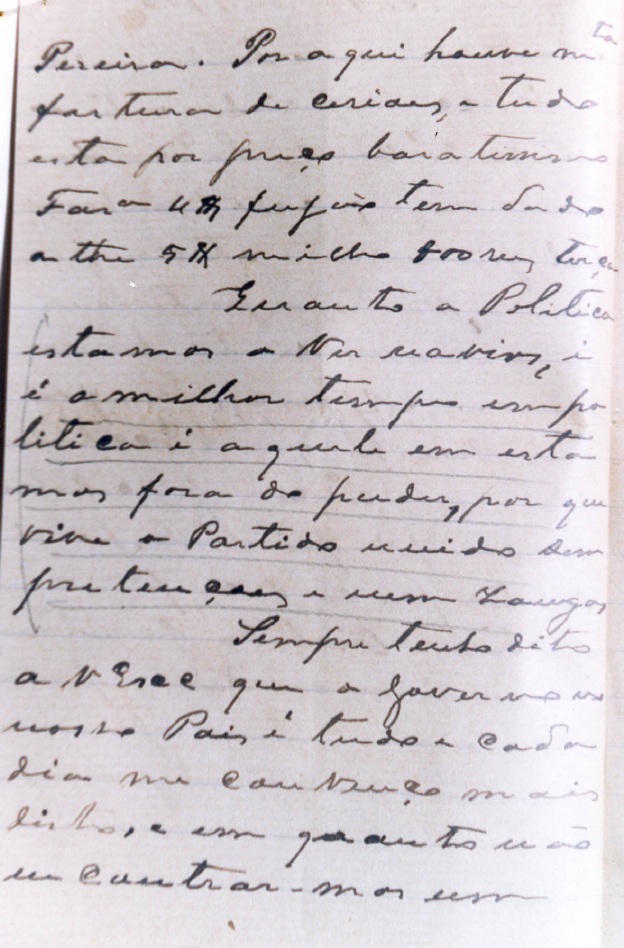 Pereira. Por aqui houve mta
fartura de ceriaes, e tudo
esta por preço baratissimo
Fara 4$ feijão tem dado
athe 5$ milho 800 reis terça
Quanto a Politica
estamos a Ver navios, i
é o milhor tempo em po
litica é aquele em esta
mos fora do puder, por que
vive o Partido unido sem
pretençoes e nem Zangas
Sempre tenho dito
a VExcª que o Governo no
nosso Pais é tudo e cada
dia me convenço mais
disto, e em quanto não
encontrar-mos um